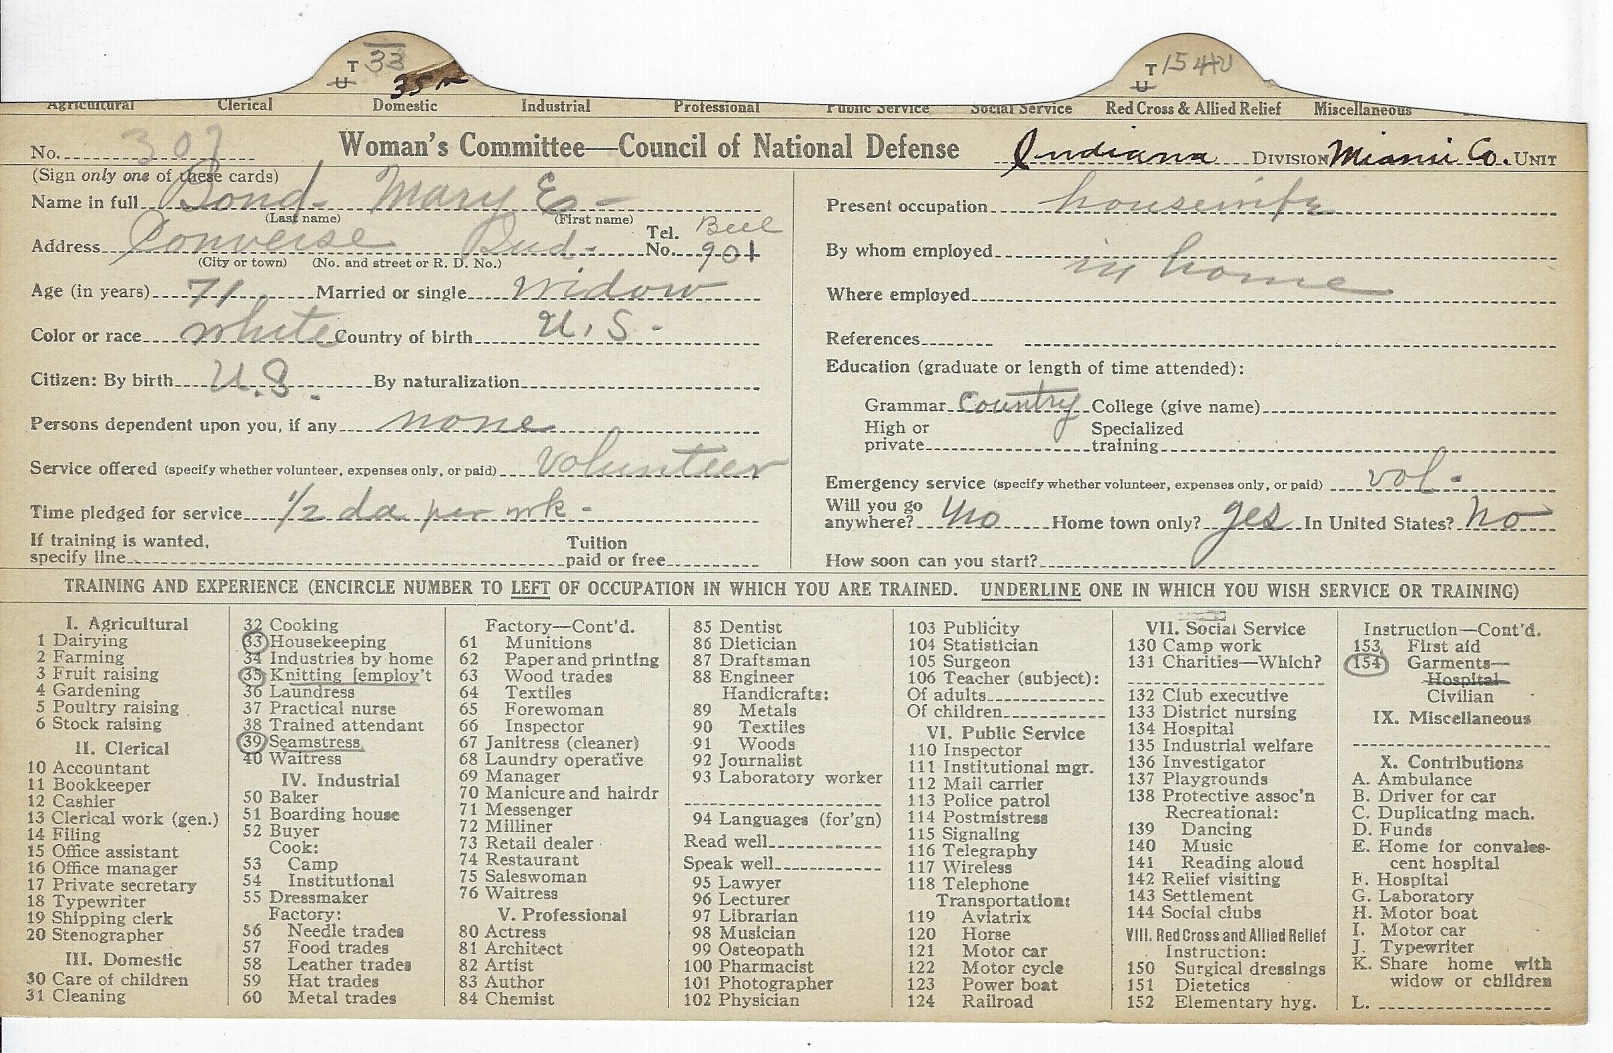 T 33
U 35
T 154
U
Agricultural Clerical Domestic Industrial Professional Public Service Social Service Red Cross & Allied Relief Miscellaneous
No. 307 Woman's Committee—Council of National Defense Indiana DIVISION Miami Co. UNIT
(Sign only one of these cards)
Name in full Bond- Mary E-
(Last name) (First name)
Address Converse Ind- Tel. No. Bell 901
(City or town) (No. and street or R. D. No.)
Age (in years) 71 Married or single widow
Color or race white Country of birth U.S-
Citizen: By birth U.S. By naturalization
Persons dependent upon you, if any none
Service offered (specify whether volunteer, expenses only, or paid) volunteer
Time pledged for service 1/2 da per wk-
If training is wanted,
specify line Tuition
paid or free
Present occupation housewife
By whom employed in home
Where employed
References
Education (graduate or length of time attended):
Grammar Country College (give name)
High or
private Specialized
training
Emergency service (specify whether volunteer, expenses only, or paid) vol-
Will you go
anywhere? No Home town only? yes In United States? No
How soon can you start?
TRAINING AND EXPERIENCE (ENCIRCLE NUMBER TO LEFT OF OCCUPATION IN WHICH YOU ARE TRAINED. UNDERLINE ONE IN WHICH YOU WISH SERVICE OR TRAINING)
I. Agricultural
1 Dairying
2 Farming
3 Fruit raising
4 Gardening
5 Poultry raising
6 Stock raising
II. Clerical
10 Accountant
11 Bookkeeper
12 Cashier
13 Clerical work (gen.)
14 Filing
15 Office assistant
16 Office manager
17 Private secretary
18 Typewriter
19 Shipping clerk
20 Stenographer
III. Domestic
30 Care of children
31 Cleaning
32 Cooking
33 Housekeeping
34 Industries by home
35 Knitting [employ't
36 Laundress
37 Practical nurse
38 Trained attendant
39 Seamstress
40 Waitress
IV. Industrial
50 Baker
51 Boarding house
52 Buyer
Cook:
53 Camp
54 Institutional
55 Dressmaker
Factory:
56 Needle trades
57 Food trades
58 Leather trades
59 Hat trades
60 Metal trades
Factory—Cont'd.
61 Munitions
62 Paper and printing
63 Wood trades
64 Textiles
65 Forewoman
66 Inspector
67 Janitress (cleaner)
68 Laundry operative
69 Manager
70 Manicure and hairdr
71 Messenger
72 Milliner
73 Retail dealer
74 Restaurant
75 Saleswoman
76 Waitress
V. Professional
80 Actress
81 Architect
82 Artist
83 Author
84 Chemist
85 Dentist
86 Dietician
87 Draftsman
88 Engineer
Handicrafts:
89 Metals
90 Textiles
91 Woods
92 Journalist
93 Laboratory worker
94 Languages (for'gn)
Read well
Speak well
95 Lawyer
96 Lecturer
97 Librarian
98 Musician
99 Osteopath
100 Pharmacist
101 Photographer
102 Physician
103 Publicity
104 Statistician
105 Surgeon
106 Teacher (subject):
Of adults
Of children
VI. Public Service
110 Inspector
111 Institutional mgr.
112 Mail carrier
113 Police patrol
114 Postmistress
115 Signaling
116 Telegraphy
117 Wireless
118 Telephone
Transportation:
119 Aviatrix
120 Horse
121 Motor car
122 Motor cycle
123 Power boat
124 Railroad
VII. Social Service
130 Camp work
131 Charities—Which?
132 Club executive
133 District nursing
134 Hospital
135 Industrial welfare
136 Investigator
137 Playgrounds
138 Protective assoc'n
Recreational:
139 Dancing
140 Music
141 Reading aloud
142 Relief visiting
143 Settlement
144 Social clubs
VIII. Red Cross and Allied Relief
Instruction:
150 Surgical dressings
151 Dietetics
152 Elementary hyg.
Instruction—Cont'd.
153 First aid
154 Garments—
Hospital
Civilian
IX. Miscellaneous
X. Contributions
A. Ambulance
B. Driver for car
C. Duplicating mach.
D. Funds
E. Home for convales-
cent hospital
F. Hospital
G. Laboratory
H. Motor boat
I. Motor car
J. Typewriter
K. Share home with
widow or children
L.